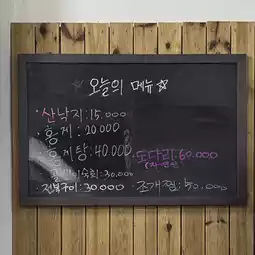 ☆오늘의 메뉴☆
·산낙지:15.000
·홍게:20000
·홍게탕:40.000
골뱅이숙회:30.000
·전복구이:30.000
·도다리:60.000
(자연산)
·조개찜:50.000